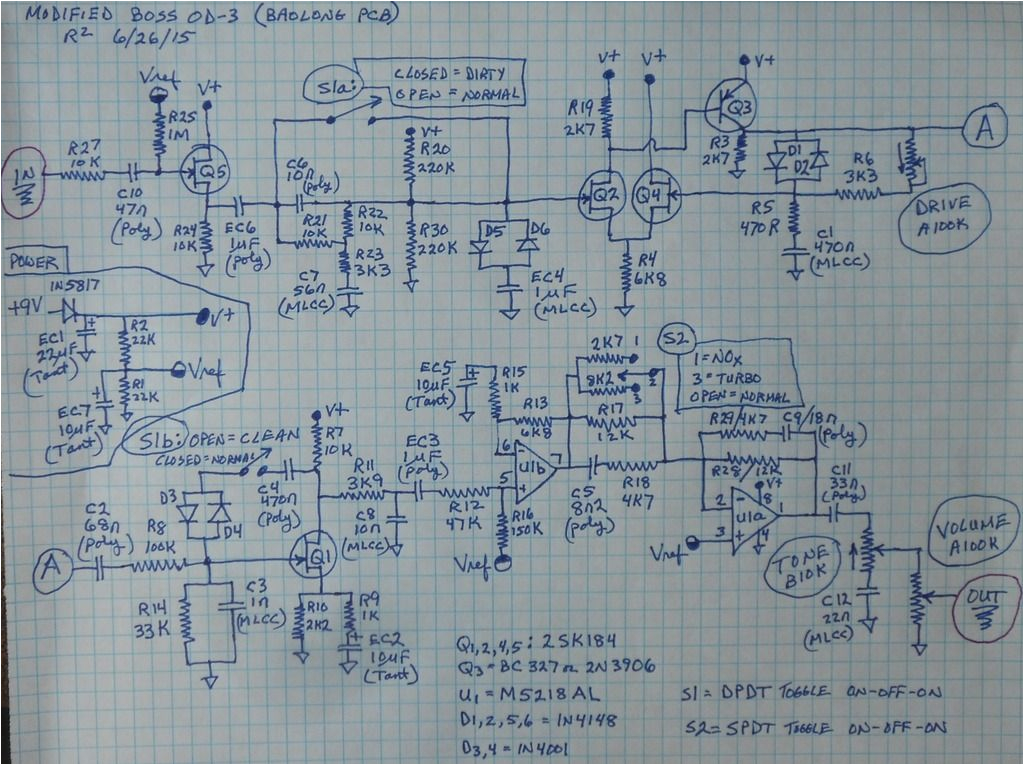 MODIFIED BOSS OD-3 (BAOLONG PCB)
R² 6/26/15
Vref
V+
R25
1M
R27
10K
IN
C10
47n
(Poly)
Q5
R24
10K
EC6
1µF
(poly)
S1a:
CLOSED = DIRTY
OPEN = NORMAL
C6
10n
(poly)
R21
10K
R22
10K
R23
3K3
C7
56n
(MLCC)
V+
R20
220K
R30
220K
D5
D6
EC4
1µF
(MLCC)
V+
V+
R19
2K7
Q2
Q4
R4
6K8
V+
Q3
R3
2K7
D1
D2
R6
3K3
R5
470R
C1
470n
(MLCC)
A
DRIVE
A100K
POWER
1N5817
+9V
V+
EC1
22µF
(Tant)
R2
22K
Vref
R1
22K
EC7
10µF
(Tant)
S1b: OPEN = CLEAN
CLOSED = NORMAL
D3
D4
C4
470n
(poly)
V+
R7
10K
R11
3K9
EC3
1µF
(Poly)
C8
10n
(MLCC)
R12
47K
C2
68n
(Poly)
R8
100K
A
Q1
R14
33K
C3
1n
(MLCC)
R10
2K2
R9
1K
EC2
10µF
(Tant)
EC5
10µF
(Tant)
R15
1K
R13
6K8
6
5
7
U1b
R16
150K
Vref
2K7
1
8K2
2
3
R17
12K
C5
8n2
(poly)
R18
4K7
S2
1 = NOX
3 = TURBO
OPEN = NORMAL
R29/4K7
C9/18n
(poly)
R28/12K
V+
2
8
1
U1a
3
4
Vref
C11
33n
(Poly)
TONE
B10K
C12
22n
(MLCC)
VOLUME
A100K
OUT
Q1,2,4,5: 2SK184
Q3 = BC327 or 2N3906
U1 = M5218AL
D1,2,5,6 = 1N4148
D3,4 = 1N4001
S1 = DPDT TOGGLE ON-OFF-ON
S2 = SPDT TOGGLE ON-OFF-ON